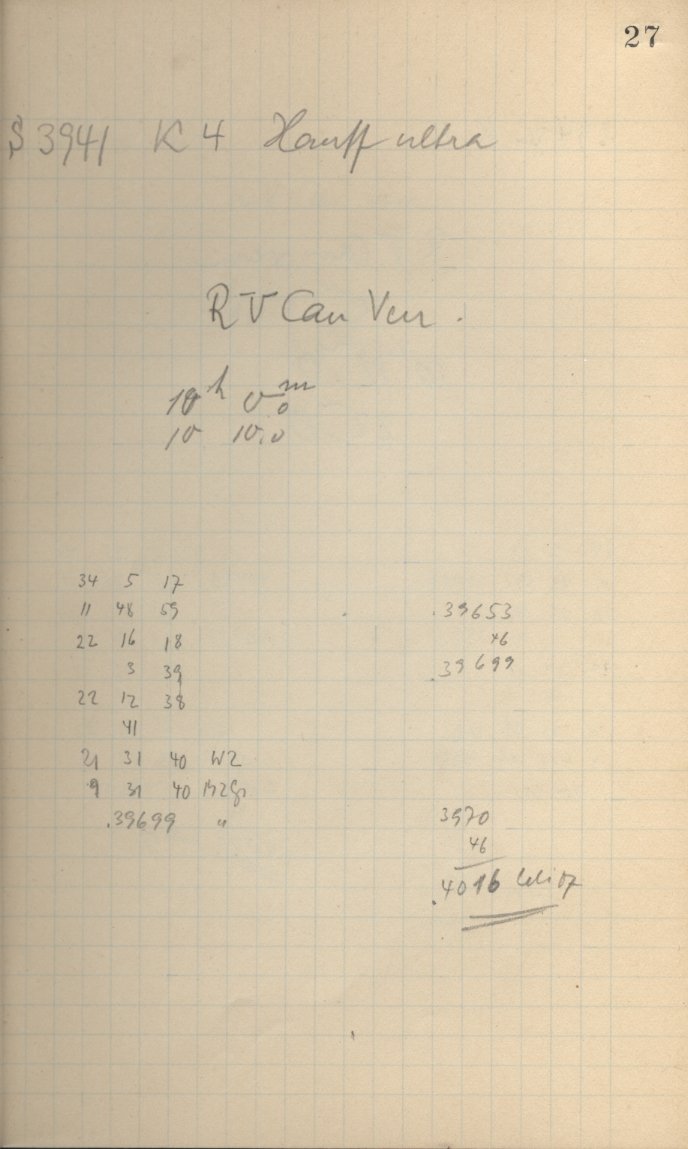 27
S 3941 K 4 Hauff ultra
RV Can Ven.
10 h 0 m 0
10 10.0
34 5 17
11 48 59
22 16 18
3 39
22 12 38
41
21 31 40 WZ
9 31 40 MZGr
.39699 "
.39653
46
.39699
3970
46
.4016